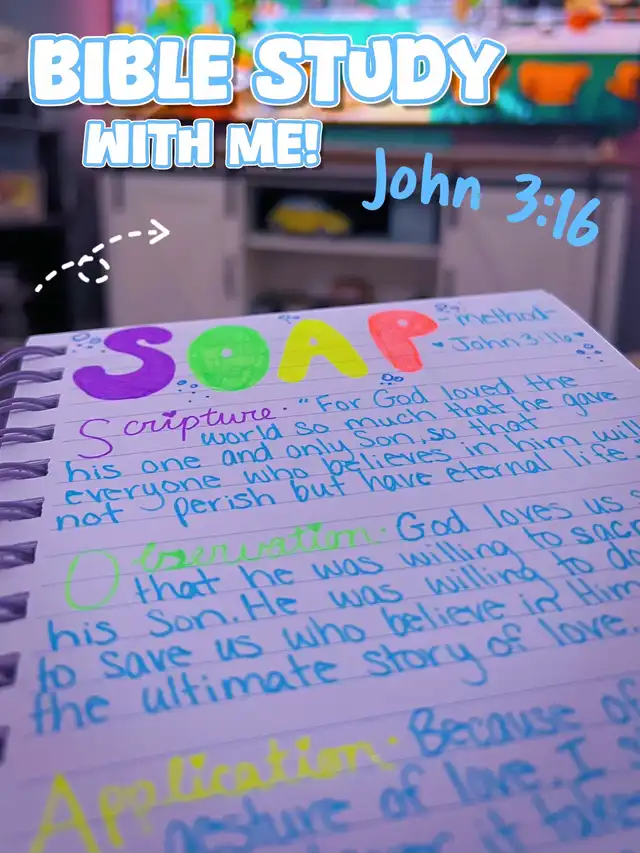 BIBLE STUDY
WITH ME!
John 3:16
SOAP method-
John 3:16
Scripture. "For God loved the
world so much that he gave
his one and only Son, so that
everyone who believes in him will
not perish but have eternal life.
Observation. God loves us
that he was willing to
his Son. He was willing to
to save us who believe in Him
the ultimate story of love.
Application. Because of
gesture of love. I
it